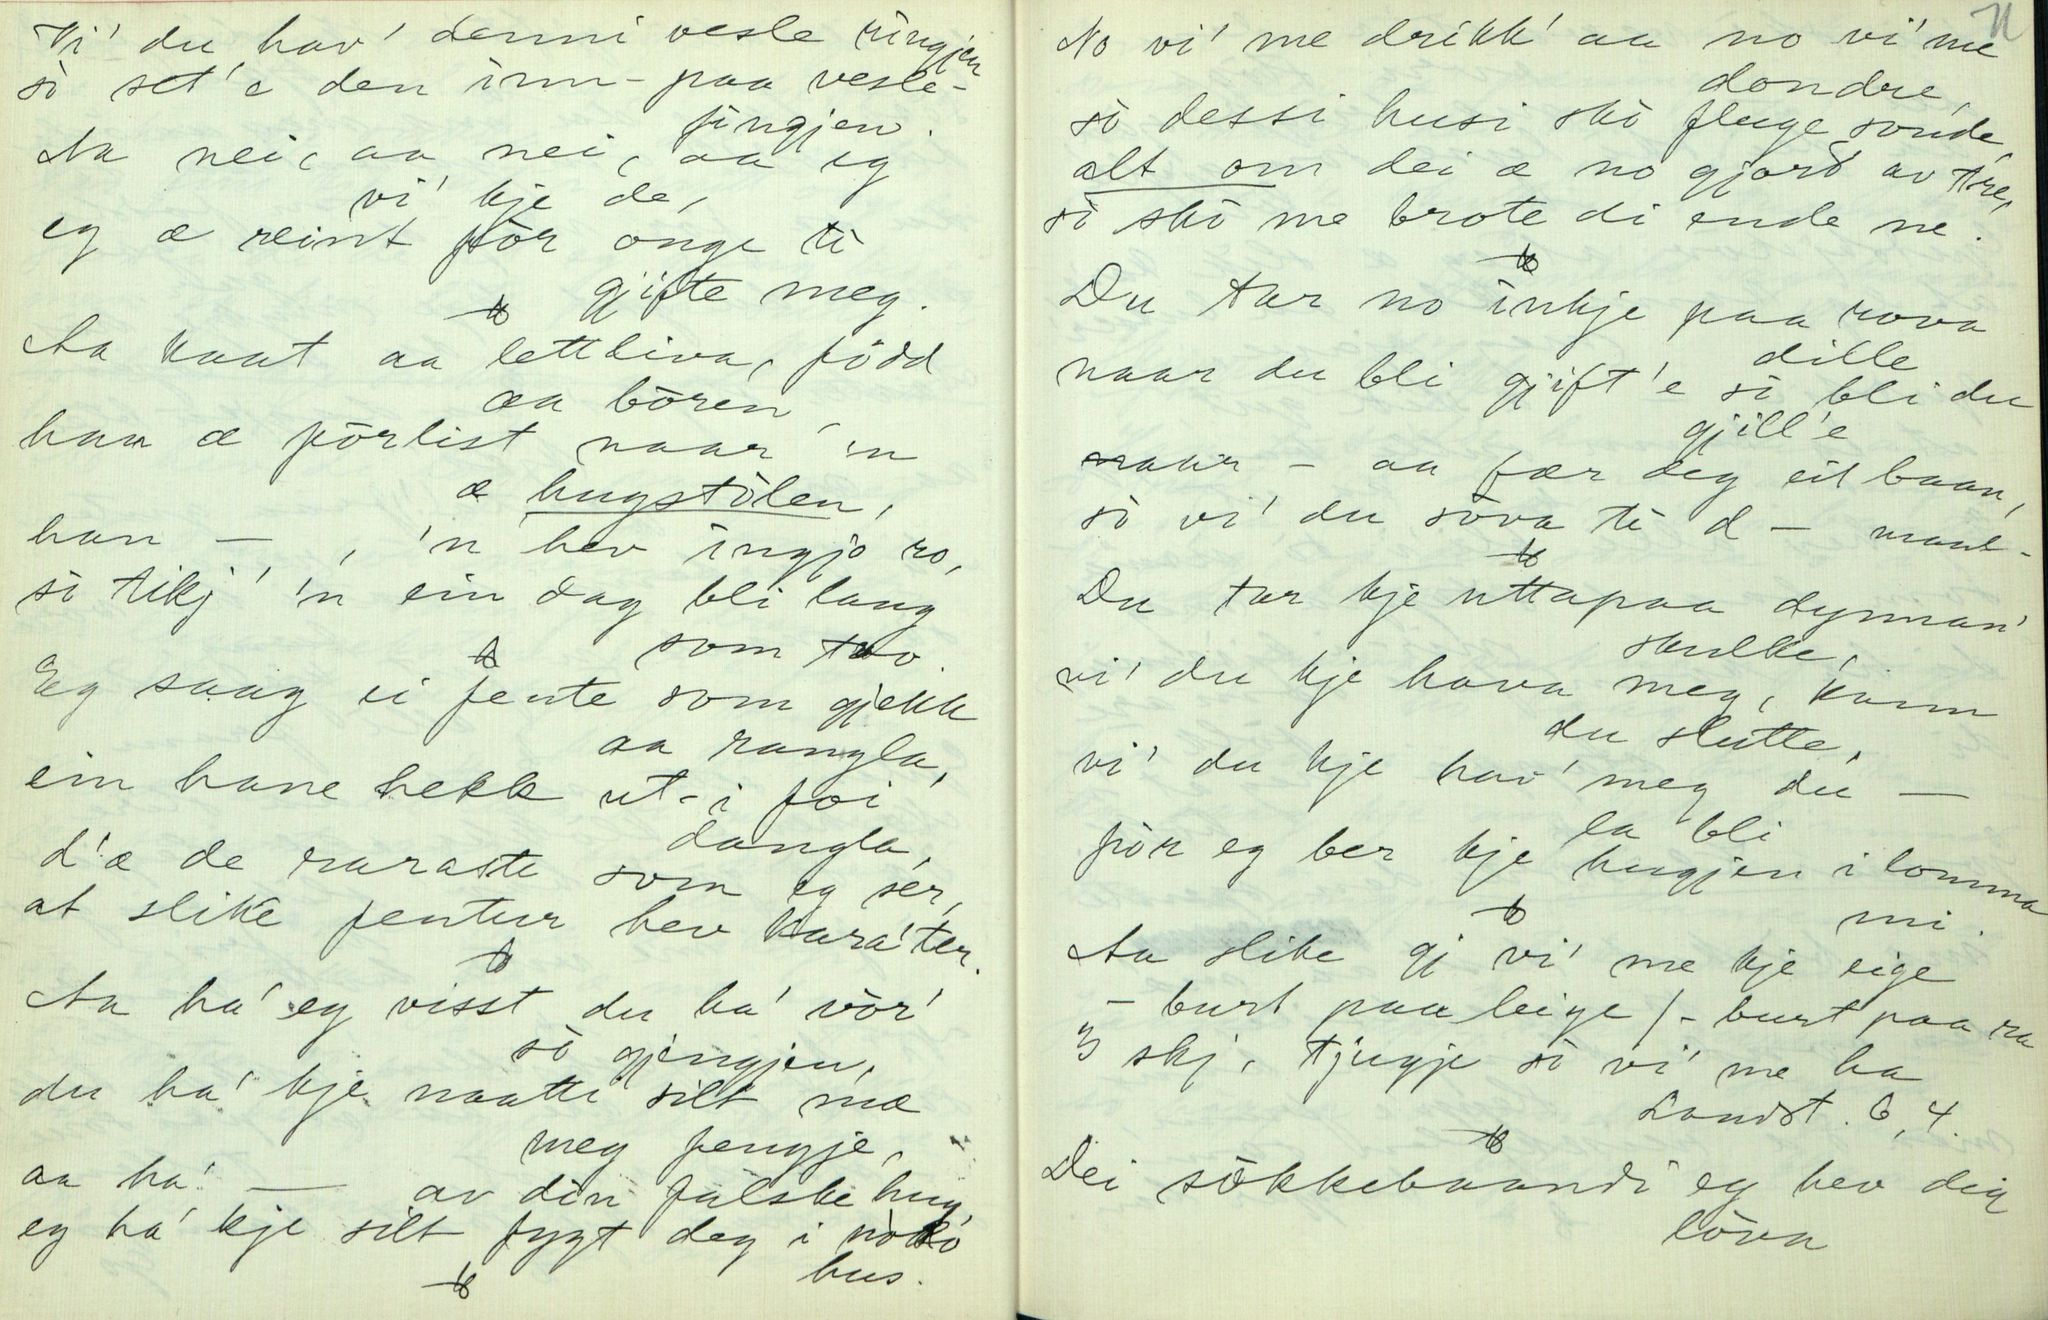 Vi' du hav' denni vesle ringjen
sò set'e den inn - paa vesle-
fingjen.
Aa nei, aa nei, aa eg
vi' kje de,
eg æ reint før onge te
gjifte meg.
Aa kaat aa lettliva, född
aa bōren
han æ pōrlist naar 'n
æ hugstòlen,
han — , 'n hev ingjo ro,
sò tikj' 'n ein dag bli lang
som tvo.
Eg saag ei jente som gjekk
aa rangla,
ein hane hekk ut-i foi
dangla,
d'æ de raraste som eg ser,
at slike jentur hev kara'ter.
Aa ha' eg visst du ha' vòr'
sò gjengjen,
du ha' kje naatti silt mæ
meg fengje,
aa ha' — av din falske hug,
eg ha' kje silt fygt deg i nòkò
hus.
No vi' me drikk' aa no vi' me
dondre,
sò dessi husi skò fluge sonde,
alt om dei æ no gjord av tre,
sò skò me brote di ende ne.
Du tar no inkje paa rova
dille
naar du bli gjift'e sò bli du
gjill'e
naar — aa fær deg eit baan,
sò vi' du sòva te d — maal-
Du tar kje uttapaa dynnan'
skulke,
vi' du kje hava meg, kann
du slutte,
vi' du kje hav' meg du —
la bli
før eg ber kje hugjen i lomma
mi.
Aa slike gj vi' me kje eige
— burt paa leige / - burt paa ra
3 skj. tjugje sò vi' me ha
Landst. 6, 4.
Dei sòkkebaandi eg hev deg
lòva